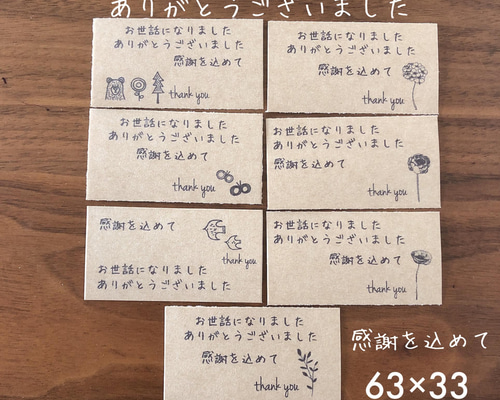 ありがとうございました
お世話になりました
ありがとうございました
感謝を込めて
thank you
お世話になりました
ありがとうございました
感謝を込めて
thank you
お世話になりました
ありがとうございました
感謝を込めて
thank you
お世話になりました
ありがとうございました
感謝を込めて
thank you
感謝を込めて
thank you
お世話になりました
ありがとうございました
お世話になりました
ありがとうございました
感謝を込めて
thank you
お世話になりました
ありがとうございました
感謝を込めて
thank you
感謝を込めて
63×33